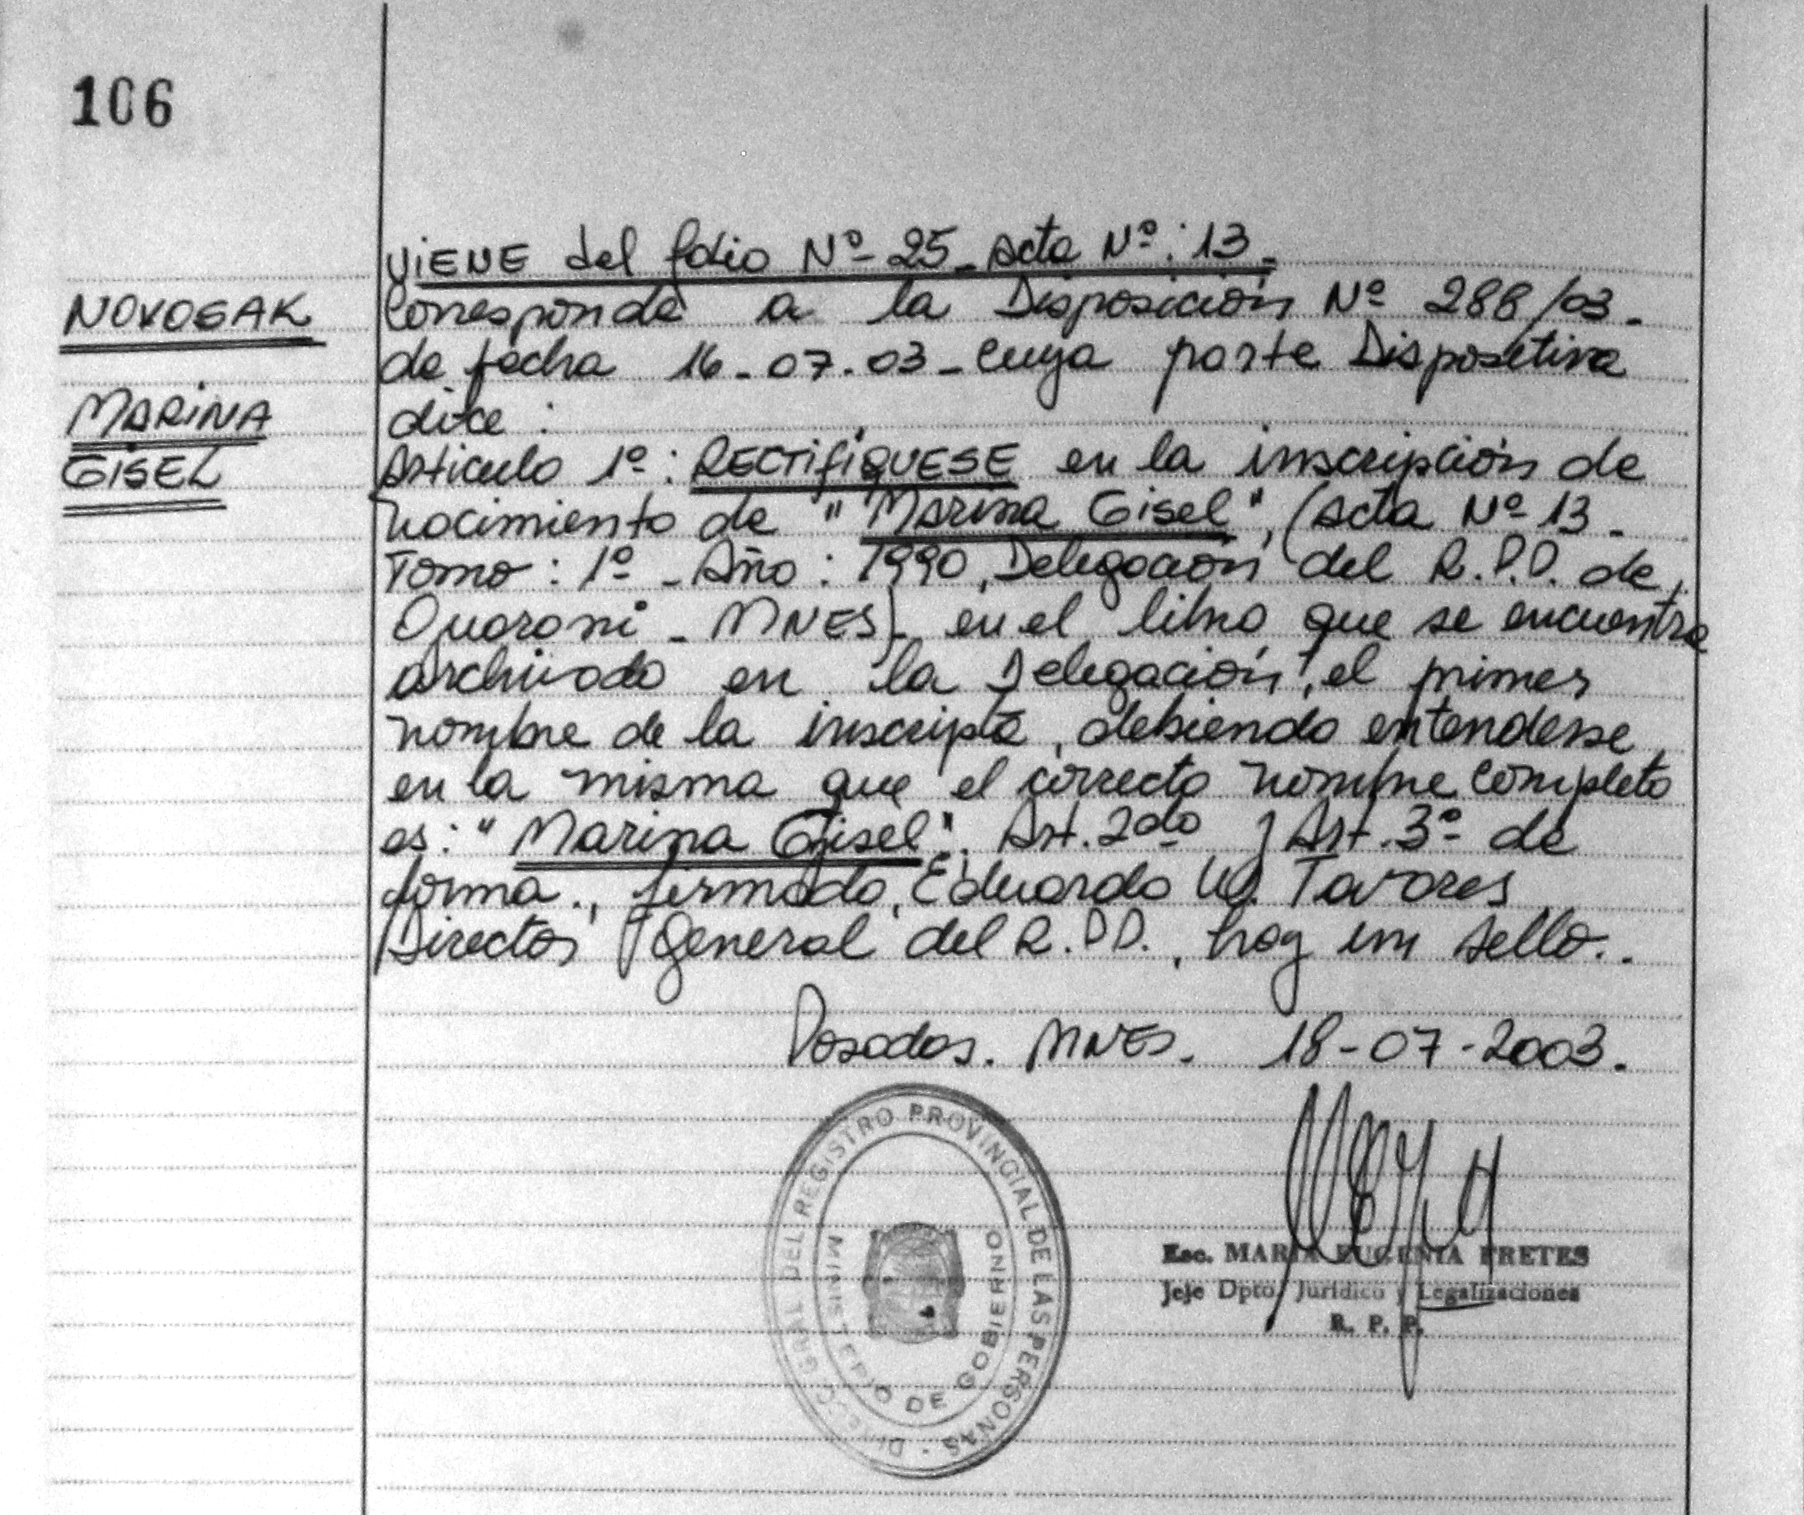 106
VIENE del folio Nº 25 - Acta Nº: 13 -
NOVOSAK
Corresponde a la Disposición Nº 288/03 -
de fecha 16-07-03 - Cuya parte Dispositiva
MARINA
dice :
GISEL
Articulo 1º : RECTIFIQUESE en la inscripción de
nacimiento de "Marina Gisel", (Acta Nº 13 -
Tomo : 1º - Año : 1990, Delegación del R.P.P. de
Guarani - MNES) - en el libro que se encuentra
archivado en la Delegación, el primer
nombre de la inscripta, debiendo entenderse
en la misma que el correcto nombre completo
es : "Marina Gisel". Art. 2do y Art. 3º de
forma ., firmado, Eduardo W. Tavares
Director General del R.P.P., hay un sello..
Posadas. MNES. 18-07-2003.
DIRECC. GRAL DEL REGISTRO PROVINCIAL DE LAS PERSONAS -
MINISTERIO DE GOBIERNO
Esc. MARIA EUGENIA FRETES
Jefe Dpto. Jurídico y Legalizaciones
R. P. P.